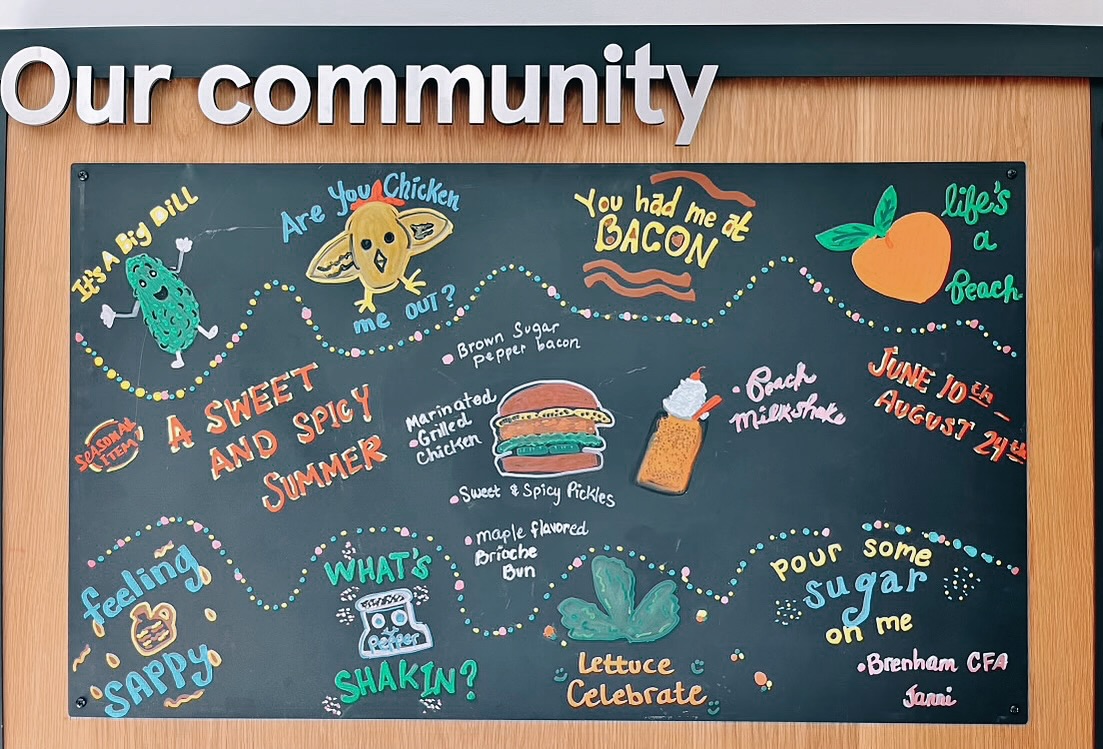 Our community
It's A Big Dill
Are You Chicken
me out?
You had me at
BACON
life's
a
peach
Brown Sugar
pepper bacon
Marinated
Grilled
Chicken
Peach
Milkshake
JUNE 10th -
AUGUST 24th
SEASONAL
ITEM!
A SWEET
AND SPICY
SUMMER
Sweet & Spicy Pickles
maple flavored
Brioche
Bun
feeling
SAPPY
WHAT'S
Pepper
SHAKIN?
Lettuce
Celebrate
pour some
sugar
on me
Brenham CFA